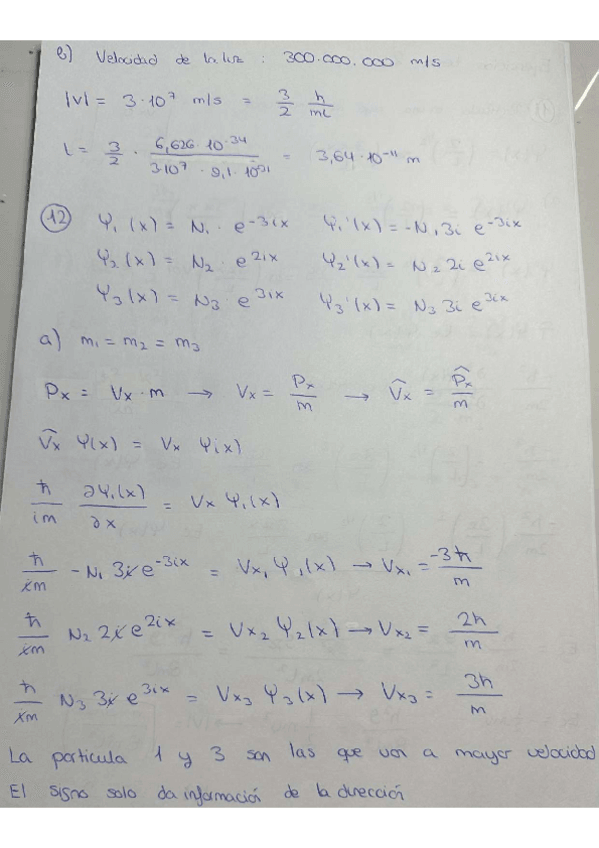 b) Velocidad de la luz : 300.000.000 m/s
|v| = 3·10⁷ m/s = 3/2 h/mL
L = 3/2 · 6,626·10⁻³⁴ / 3·10⁷ · 9,1·10⁻³¹ = 3,64·10⁻¹¹ m
12 Ψ₁(x) = N₁ · e⁻³ⁱˣ Ψ₁'(x) = -N₁3i e⁻³ⁱˣ
Ψ₂(x) = N₂ · e²ⁱˣ Ψ₂'(x) = N₂ 2i e²ⁱˣ
Ψ₃(x) = N₃ · e³ⁱˣ Ψ₃'(x) = N₃ 3i e³ⁱˣ
a) m₁ = m₂ = m₃
Px = Vx · m → Vx = Px/m → V̂x = P̂x/m
V̂x Ψ(x) = Vx Ψ(x)
ħ/im ∂Ψ₁(x)/∂x = Vx Ψ₁(x)
ħ/im -N₁ 3i e⁻³ⁱˣ = Vx₁ Ψ₁(x) → Vx₁ = -3ħ/m
ħ/im N₂ 2i e²ⁱˣ = Vx₂ Ψ₂(x) → Vx₂ = 2ħ/m
ħ/im N₃ 3i e³ⁱˣ = Vx₃ Ψ₃(x) → Vx₃ = 3ħ/m
La partícula 1 y 3 son las que van a mayor velocidad
El signo solo da información de la dirección